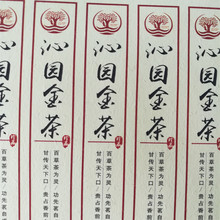 沁园金茶
百草茶为灵 功先茗自
甘传天下口 贵占香前
沁园金茶
百草茶为灵 功先茗自
甘传天下口 贵占香前
沁园金茶
百草茶为灵 功先茗自
甘传天下口 贵占香前
沁园金茶
百草茶为灵 功先茗自
甘传天下口 贵占香前